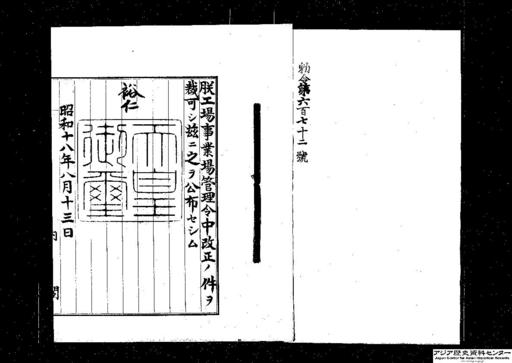 勅令第六百七十二號
朕工場事業場管理令中改正ノ件ヲ
裁可シ茲ニ之ヲ公布セシム
裕仁
天皇御璽
昭和十八年八月十三日
内閣
アジア歴史資料センター
Japan Center for Asian Historical Records